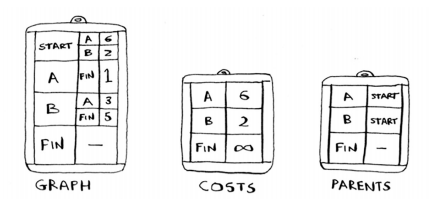 START A 6
B 2
A FIN 1
B A 3
FIN 5
FIN —
GRAPH
A 6
B 2
FIN ∞
COSTS
A START
B START
FIN -
PARENTS